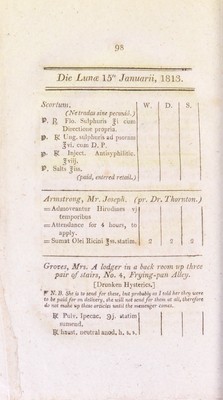 98
Die Lunæ 15º Januarii, 1813.
W. D. S.
Scortum.
(Ne tradas sine pecuniâ.)
P. ℞ Flo. Sulphuris ℥i cum
Directione propria.
p. ℞ Ung. sulphuris ad psoram
℥vi. cum D. P.
p. ℞ Inject. Antisyphilitic.
℥viij.
P. Salts ℥iss.
(paid, entered retail.)
Armstrong, Mr. Joseph. (pr. Dr. Thornton.)
Admoveantur Hirudines vj
temporibus
Attendance for 4 hours, to
apply.
Sumat Olei Ricini ℥ss. statim. 2 2 8
Groves, Mrs. A lodger in a back room up three
pair of stairs, No. 4, Frying-pan Alley.
[Drunken Hysterics.]
N. B. She is to send for these, but probably as I told her they were
to be paid for on delivery, she will not send for them at all, therefore
do not make up these articles until the messenger comes.
℞ Pulv. Ipecac. ℈j. statim
sumend.
℞ haust. neutral anod. h. s. s.